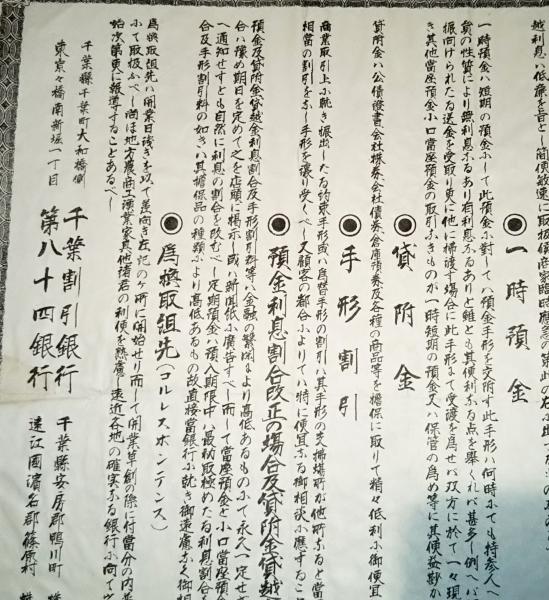 越利息ハ低廉を旨とし簡便敏速に取扱候商家臨時應急の策
◉一時預金
一時預金ハ短期の預金ふして此預金ふ對してハ預金手形を交附す此手形ハ何時ふても持參人へ
の性質により無利息ふるあり有利息ふるありと雖とも其便利ふる点を擧くれバ甚多し例へバ
振向けられたる送金を受取り更に他に拂渡す場合に此手形にて受渡を爲せバ双方に於て一々現
き其他當座預金小口當座預金の取引ふきものが一時短期の預金又ハ保管の爲め等に其便益尠か
◉貸附金
貸附金ハ公債證書會社株券會社債券倉庫預券及各種の商品等を擔保に取りて精々低利ふ御便宜
◉手形割引
商業取引上ふ就き振出したる約束手形或ハ爲替手形の割引ハ其手形の支拂場所が他所ふると當
相當の割引をふし手形を讓り受くべし又顧客の都合ふよりてハ特に便宜ふる御相談ふ應することニ
◉預金利息割合改正の場合及貸附金貸越
預金及貸附金貸越金利息割合及手形割引料等ハ金融の繁閑により高低あるものふて永久一定せ
合ハ豫め期日を定めて之を店頭に掲示し或ハ新聞紙ふ廣告すべし而して當座預金と小口當座預
へ通知せすとも自然に利息の割合を改むべし定期預金ハ預入期限中ハ最初取極めたる利息割合
合及手形割引料の如きハ其擔保品の種類ふより高低あるもの故直接當銀行ふ就き御遠慮ふく御相
◉爲換取組先（コルレスポンデンス）
爲換取組先ハ開業日淺きを以て差向き左記のヶ所に開始せり而して開業草創の際に付當分の内
ふて取扱ふべし尚ほ地方農商工漁業家其他諸君の利便を熟慮し遠近各地の確実ふる銀行ふ向て
始次第更に報導することあるべし
千葉縣千葉町大和橋側　千葉割引銀行　千葉縣安房郡鴨川町
東京々橋南新堀一丁目　第八十四銀行　遠江國濱名郡篠原村